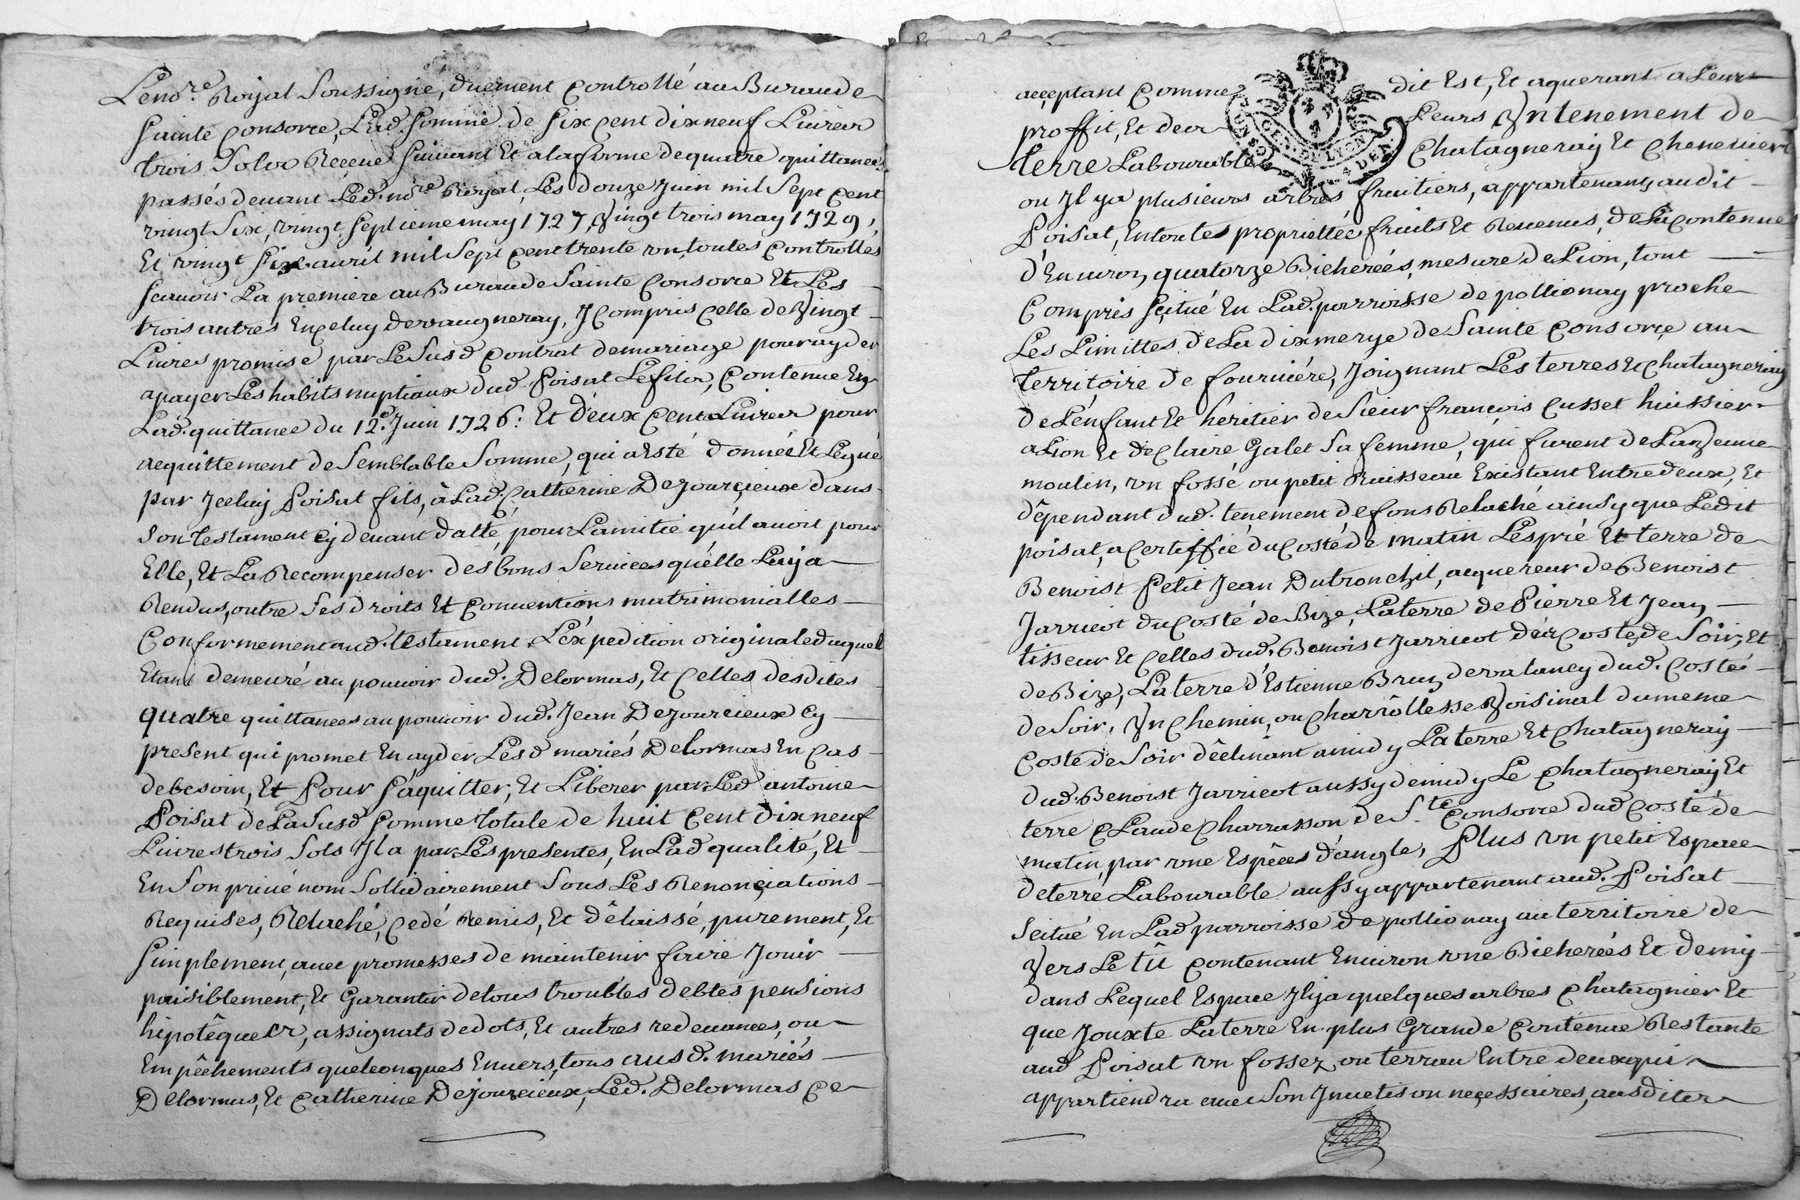 Le no.re Royal Soussigné, duement Controllé au Bureau de
Sainte Consorce, Lad. Somme de Six Cent dix neuf Livres
trois Solx Receue Suivant Et a la forme de quatre quittances
passés devant Led. no.re Royal, Les douze Juin mil Sept Cent
vingt Six, vingt Septieme may 1727, vingt trois may 1729,
Et vingt Six avril mil Sept Cent trente un, toutes Controlles
Scavoir La premiere au Bureau de Sainte Consorce Et Les
trois autres En Celuy de vaugneray, J Compris Celle de Vingt
Livres promise par Le Susd Contrat de mariage pour ayder
a payer Les habits nuptiaux dud. Poisat Le fils, Contenue En
Lad. quittance du 12e. Juin 1726: Et deux Cent Livres pour
acquittement de Semblable Somme, qui a Esté donnée Et Legué
par Jceluy Poisat fils, à Lad. Catherine Dejourcieux dans
Son testament Cy devant datté, pour L'amitié qu'il avoit pour
Elle, Et La Recompenser des bons Services qu'elle Luy a
Rendus, outre Ses droits Et Conventions matrimonialles
Conformement aud. testament, L'expedition originale duquel
Etant demeuré au pouvoir dud. Delormas, Et Celles desdites
quatre quittances au pouvoir dud. Jean Dejourcieux Cy
present qui promet En ayder Lesd mariés Delormas En Cas
de besoin, Et Pour S'aquitter, Et Liberer par Led antoine
Poisat de La Susd Somme totale de huit Cent Dix neuf
Livres trois Sols Jl a par Les presentes, En Lad qualité, Et
En Son privé nom Sollidairement Sous Les Renonciations
Requises, Relaché, Cedé Remis, Et délaissé, purement, Et
Simplement, avec promesses de maintenir faire Jouir
paisiblement, Et Garantir de tous troubles debtes pensions
hipotêques, assignats de dots, Et autres redevances, ou
Empêchements quelconques Envers, tous ausd. mariés
Delormas, Et Catherine Dejourcieux, Led. Delormas Ce
acceptant Comme dit Est, Et aquerant a Leur
proffit, Et de Leurs Vn tenement de
terre Labourable Chatagneray Et Cheneviere
ou Jl y a plusieurs arbres fruitiers, appartenants audit
Poisat, En toutes proprietées fruits Et Revenus, de La Contenue
d'Environ quatorze Bicherées, mesure de Lion, tout
Compris Scitué En Lad. parroisse de pollionay proche
Les Limittes de La dixmerye de Sainte Consorce au
territoire de fourniére, Joignant Les terres Et Chatagneray
de L'enfant Et heritier de Sieur françois Cusset huissier
a Lion Et de Claire Galet Sa femme, qui furent de
moulin, un fossé ou petit Ruisseau Existant Entre deux, Et
dépendant dud. tenement de fons Relaché ainsy que Ledit
poisat, a Certiffié du Costé de matin Les pré Et terre de
Benoist Petit Jean Dutronchil, acquereur de Benoist
Jarricot du Costé de Bize, La terre de Pierre Et Jean
tisseur Et Celles dud. Benoist Jarricot des Costés de Soir, Et
de Bize, La terre d'Estienne Brun de vatancy dud. Costé
de Soir, Vn Chemin, ou Charriôllesse Voisinal du meme
Costé de Soir déclinant a midy La terre Et Chatagneray
dud. Benoist Jarricot aussy de midy Le Chatagneray Et
terre Claude Charrasson de S.te Consorce dud Costé de
matin, par une Espêces d'angle, Plus un petit Espace
de terre Labourable aussy appartenant aud. Poisat
Scitué En Lad parroisse de pollionay au territoire de
Vers Le tû Contenant Environ une Bicherées Et demy
dans Lequel Espace Jl y a quelques arbres Chatagnier Et
que Jouxte La terre En plus Grande Contenue Restante
aud Poisat un fossez ou terrau Entre deux qui
appartiendra avec Son Jnvetison neçessaires, ausdites
GEN. DE LEON